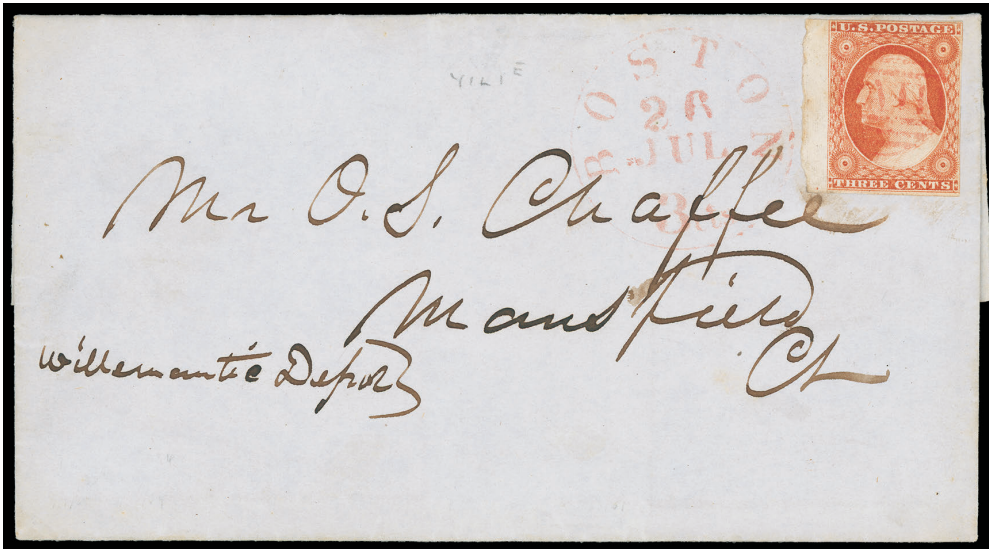 U.S. POSTAGE
THREE CENTS
BOSTON
26
JUL
3 cts
Mr O. S. Chaffee
Mansfield
Ct
Willemantic Depot